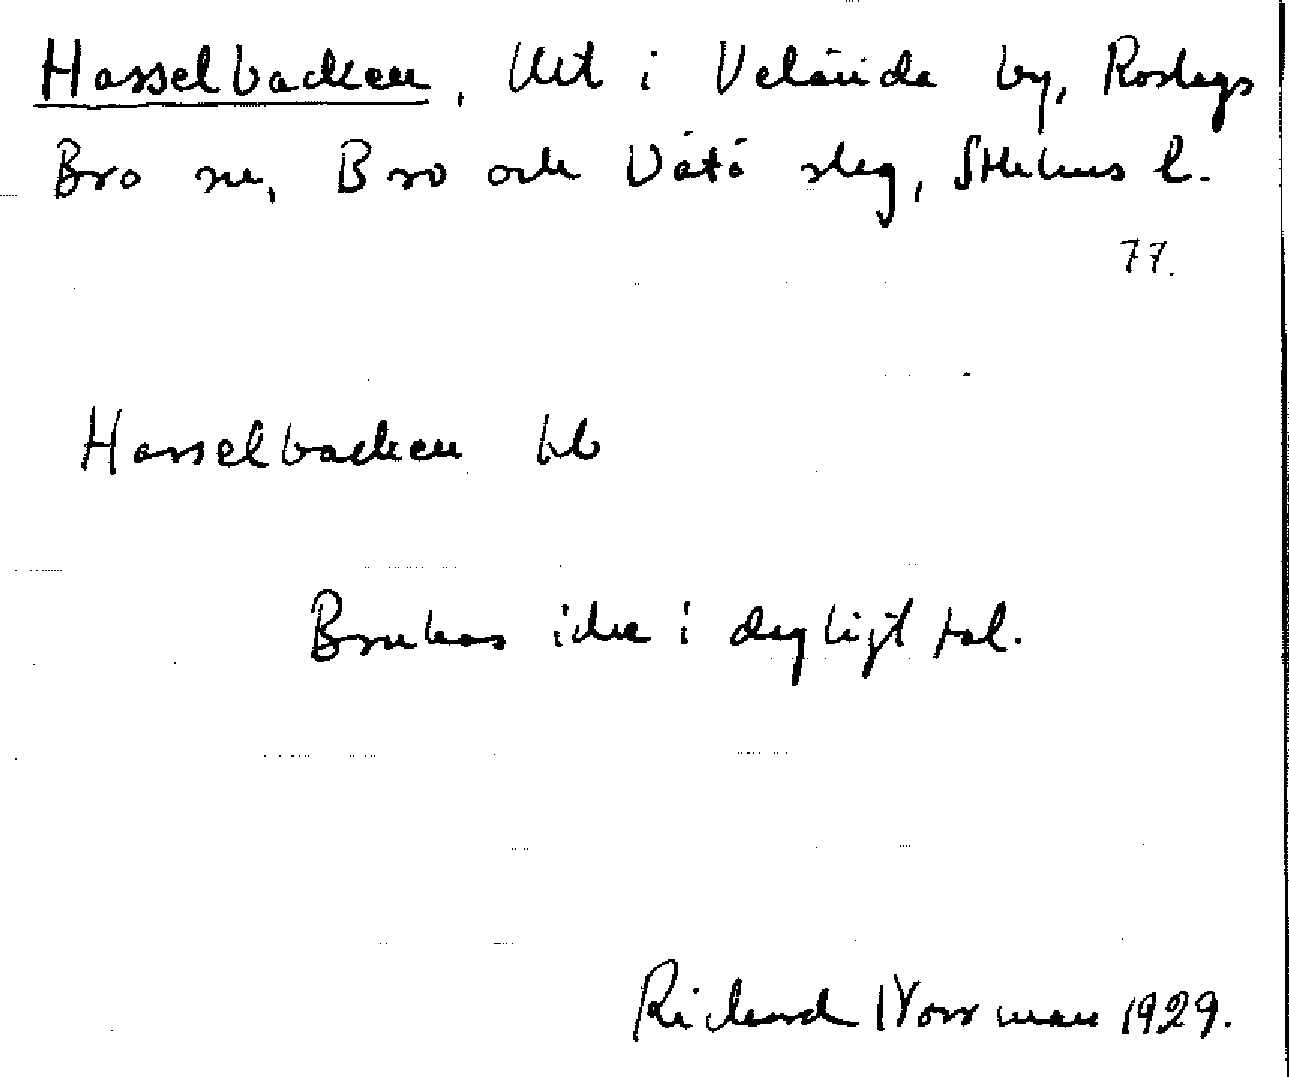 Hasselbacken, Utt i Velända by, Roslags
Bro sn, Bro och Vätö slag, Sthlms l.
77.
Hasselbacken
Brukas icke i dagligt tal.
Richard Norrman 1929.